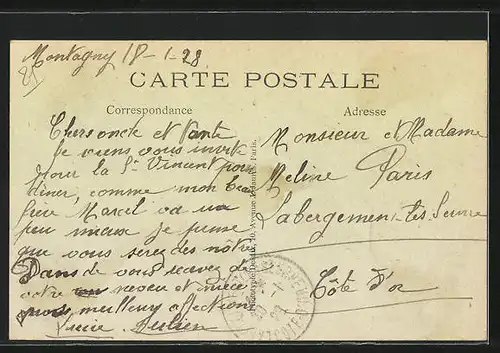 Montagny 18-1-28
CARTE POSTALE
Correspondance
Adresse
Chers oncle et Tante
Je viens vous invite
pour la St Vincent pour
diner, comme mon beau
frère Marcel va un
peu mieux je pense
que vous serez des nôtres
Dans de vous recevez de
votre neveu et nièce
meilleur affection
Julien
Monsieur et Madame
Meline Paris
Labergement-lès-Seurre
Côte d'or